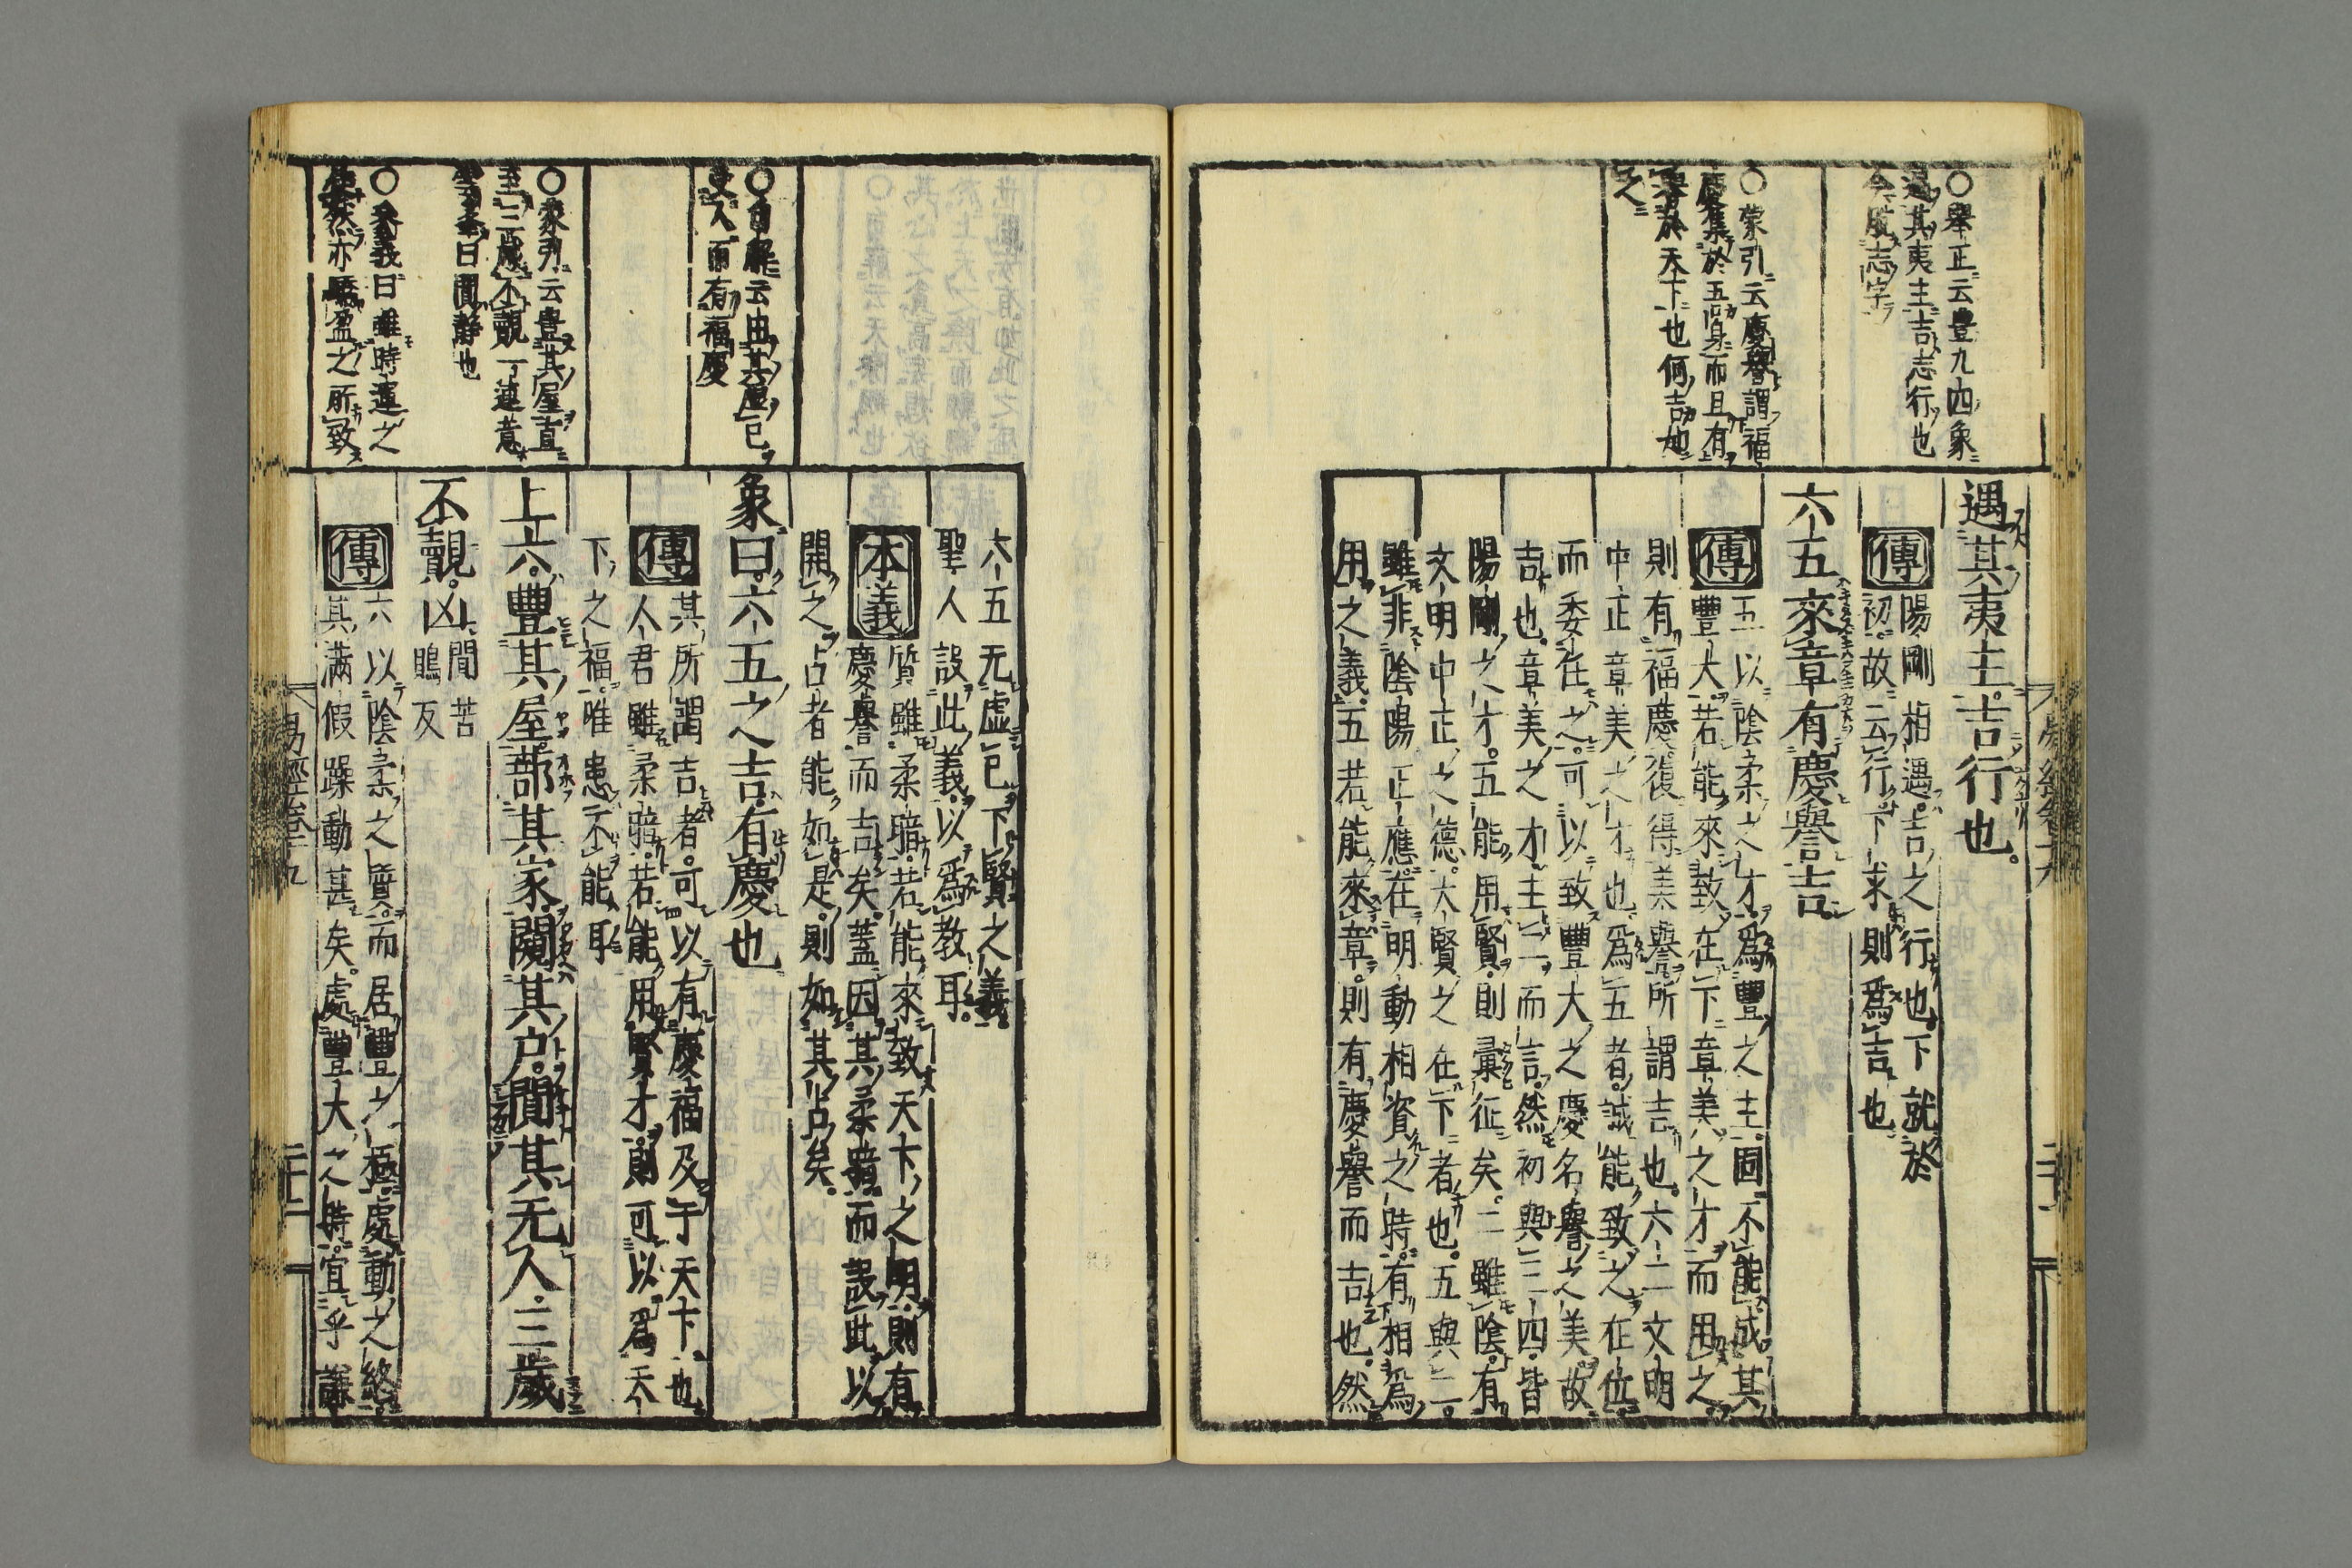 ○舉正云豊九四象
遇其夷主吉志行也
今脱志字
○蒙引云慶譽謂福
慶集於五身而且有
譽於天下也何吉如
之
遇其夷主吉行也
傳
陽剛相遇吉之行也下就於
初故云行下求則爲吉也
六五來章有慶譽吉
傳
五以陰柔之才爲豐之主固不能成其
豐大若能來致在下章美之才而用之
則有福慶復得美譽所謂吉也六二文明
中正章美之才也爲五者誠能致之在位
而委任之可以致豐大之慶名譽之美故
吉也章美之才主二而言然初與三四皆
陽剛之才五能用賢則彙征矣二雖陰有
文明中正之德大賢之在下者也五與二
雖非陰陽正應在明動相資之時有相爲
用之義五若能來章則有慶譽而吉也然
○自解云由其虚已
受人而有福慶
○蒙引云豊其屋直
至三歲不覿一連意
曰闃靜也
曰雖時運之
使然亦驕盈之所致
六五无虚已下賢之義
聖人設此義以爲教耳
本義
質雖柔暗若能來致天下之明則有
慶譽而吉矣蓋因其柔暗而設此以
開之占者能如是則如其占矣
象曰六五之吉有慶也
傳
其所謂吉者可以有慶福及于天下也
人君雖柔暗若能用賢才則可以爲天
下之福唯患不能耳
上六豐其屋蔀其家闚其户闃其无人三歲
不覿凶
闃苦
鵙反
傳
六以陰柔之質而居豐之極處動之終
其满假躁動甚矣處豐大之時宜乎謙
易經卷十九